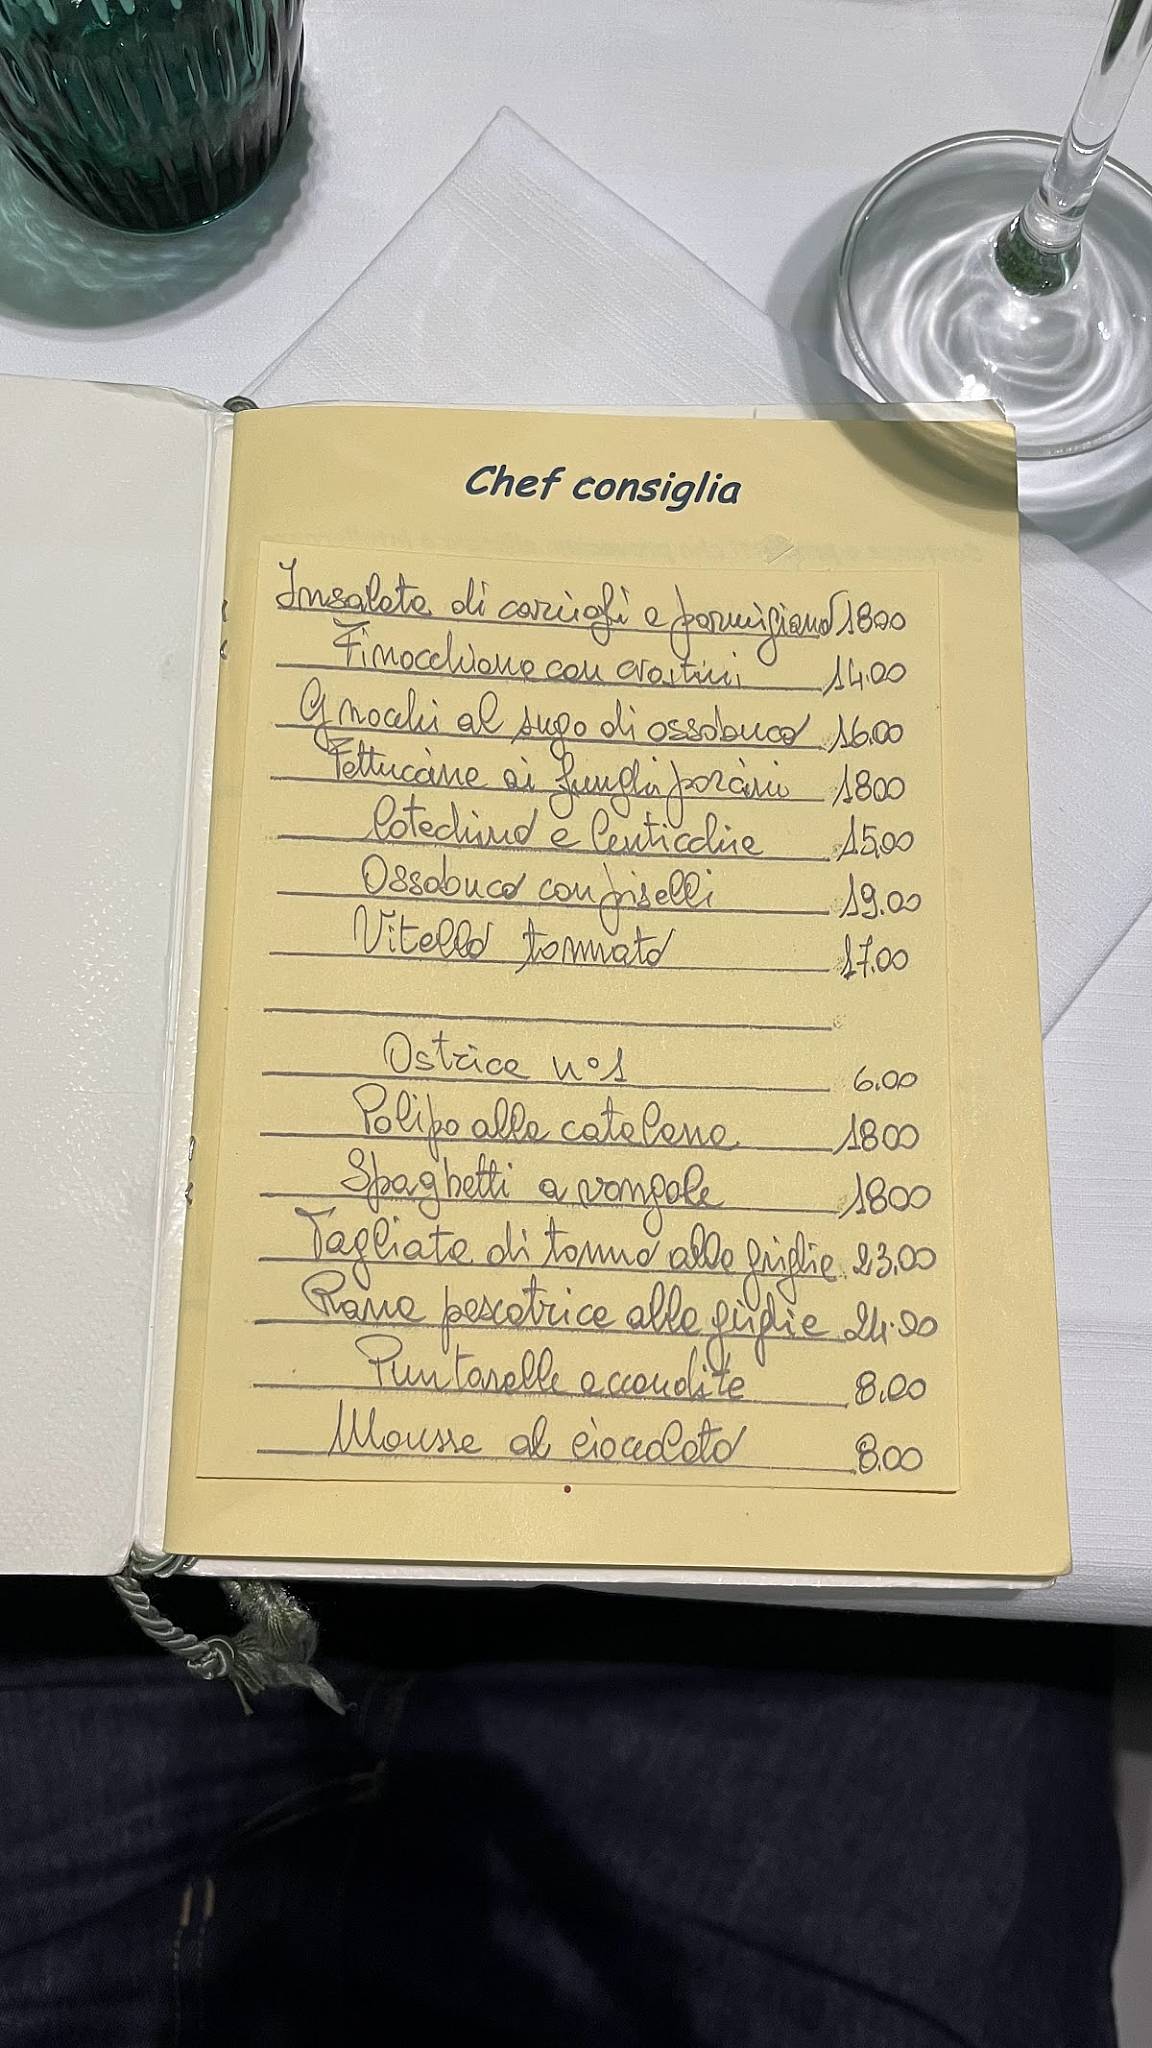 Chef consiglia
Insalata di carciofi e parmigiano 18.00
Finocchiona con crostini 14.00
Gnocchi al sugo di ossobuco 16.00
Fettuccine ai funghi porcini 1800
Cotechino e lenticchie 15.00
Ossobuco con piselli 19.00
Vitello tonnato 17.00
Ostrica n°1 6.00
Polipo alla catalana 1800
Spaghetti a vongole 1800
Tagliata di tonno alla griglia 23.00
Rana pescatrice alla griglia 24.00
Puntarelle accondite 8.00
Mousse al cioccolato 8.00